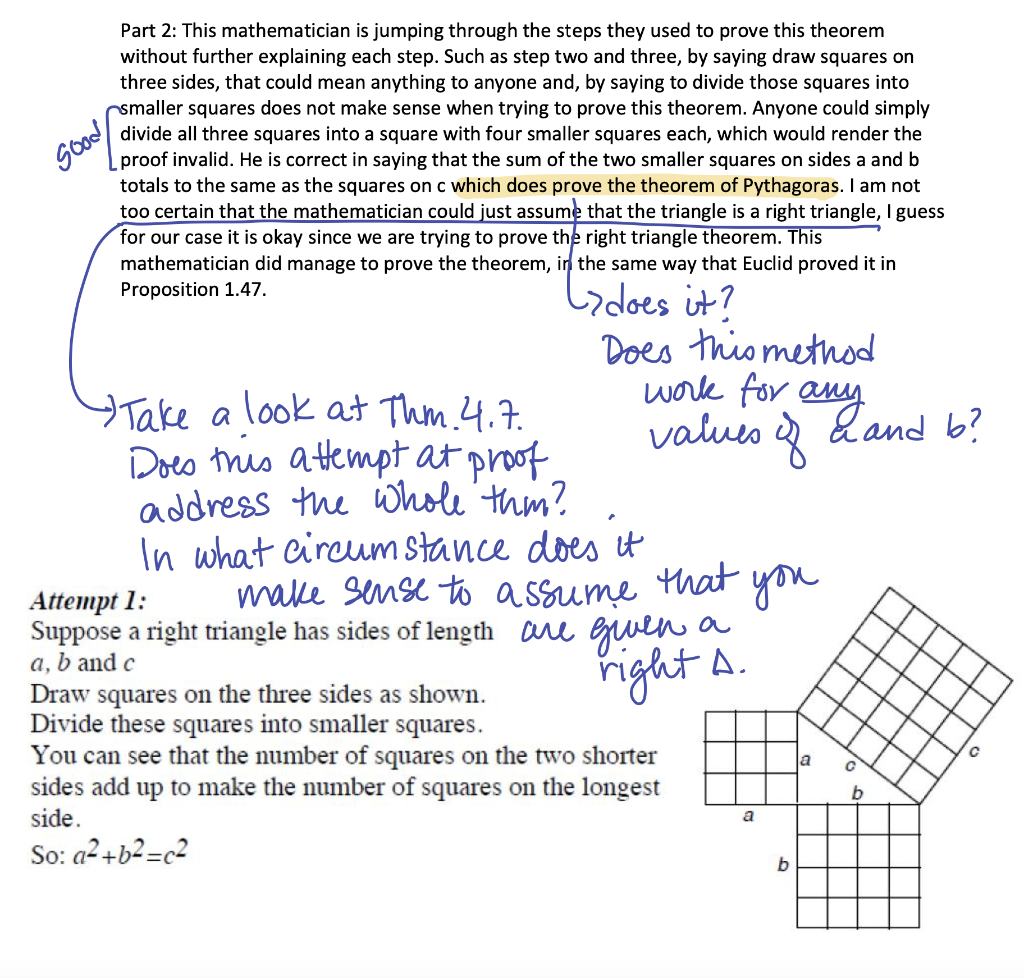 Part 2: This mathematician is jumping through the steps they used to prove this theorem
without further explaining each step. Such as step two and three, by saying draw squares on
three sides, that could mean anything to anyone and, by saying to divide those squares into
smaller squares does not make sense when trying to prove this theorem. Anyone could simply
divide all three squares into a square with four smaller squares each, which would render the
proof invalid. He is correct in saying that the sum of the two smaller squares on sides a and b
totals to the same as the squares on c which does prove the theorem of Pythagoras. I am not
too certain that the mathematician could just assume that the triangle is a right triangle, I guess
for our case it is okay since we are trying to prove the right triangle theorem. This
mathematician did manage to prove the theorem, in the same way that Euclid proved it in
Proposition 1.47.
good
does it?
Does this method
work for any
values of a and b?
Take a look at Thm. 4.7.
Does this attempt at proof
address the whole thm?
In what circumstance does it
make sense to assume that you
are given a
right Δ.
Attempt 1:
Suppose a right triangle has sides of length
a, b and c
Draw squares on the three sides as shown.
Divide these squares into smaller squares.
You can see that the number of squares on the two shorter
sides add up to make the number of squares on the longest
side.
So: a²+b²=c²
a
c
c
b
a
b